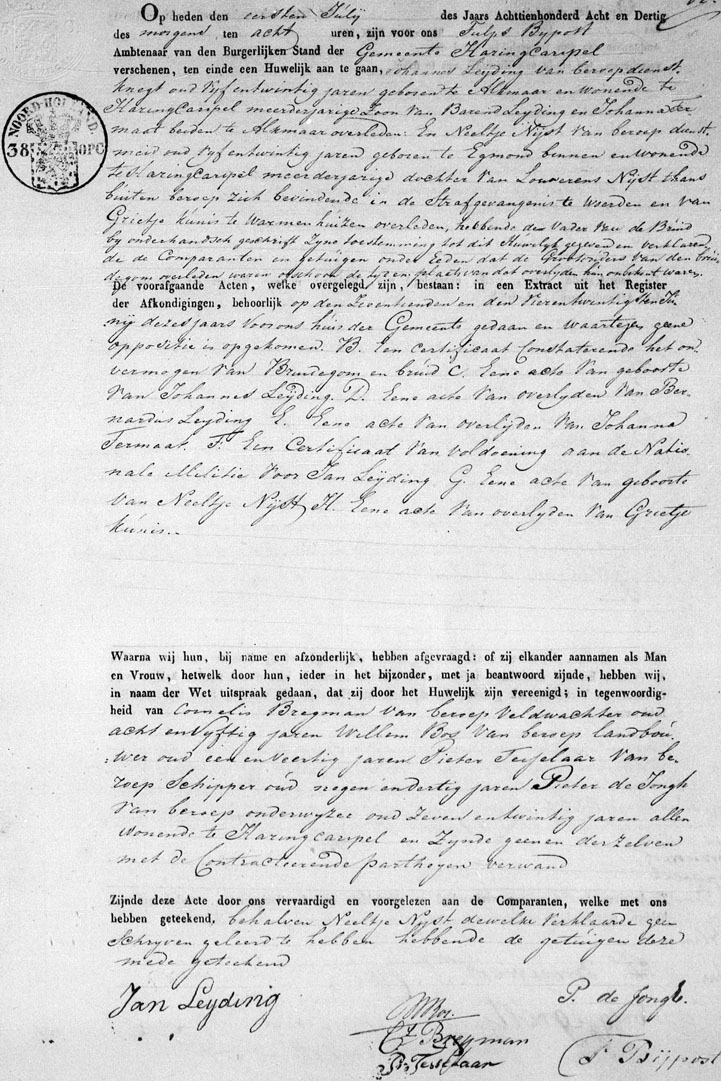 Op heden den eersten Julij des Jaars Achttienhonderd Acht en Dertig
des morgens ten acht uren, zijn voor ons Tulps Bijpost
Ambtenaar van den Burgerlijken Stand der Gemeente Haringcarspel
verschenen, ten einde een Huwelijk aan te gaan, Johannes Leyding van beroep dienst
knegt oud Vijf entwintig jaren geboren te Alkmaar en wonende te
Haringcarspel meerderjarige Zoon van Barend Leyding en Johanna Ter
maat beiden te Alkmaar overleden: En Neeltje Nijst van beroep dienst
meid oud Vyf entwintig jaren geboren te Egmond binnen en wonende
te Haringcarspel meerderjarige dochter van Louwerens Nijst thans
buiten beroep zich bevindende in de Strafgevangenis te Woerden en van
Grietje Kunis te Warmenhuizen overleden, hebbende de Vader van de Bruid
by onderhandsch geschrift Zyne toestemming tot dit Huwelyk gegeven en verklaren
de de Comparanten en getuigen onder Eeden dat de Grootouders van den Brui
degom overleden waren ofschoon de tyd en plaats van dat overlyden hun onbekent waren
De voorafgaande Acten, welke overgelegd zijn, bestaan: in een Extract uit het Register
der Afkondigingen, behoorlijk op den Zeventienden en den Vierentwintigsten Ju
nij dezes jaars voor ons huis der Gemeente gedaan en waartegen geene
oppositie is opgekomen. B. Een certificaat Constaterende het on
vermogen van Bruidegom en bruid C. Eene acte van geboorte
van Johannes Leyding. D. Eene acte van overlyden van Ber
nardus Leyding E. Eene acte van overlijden van Johanna
Termaat. F. Een Certificaat van voldoening aan de Natio
nale Militie voor Jan Leyding G. Eene acte van geboorte
van Neeltje Nijst H. Eene acte van overlyden van Grietje
Kunis..
NOORD-HOLLAND.
38
OPC
Waarna wij hun, bij name en afzonderlijk, hebben afgevraagd: of zij elkander aannamen als Man
en Vrouw, hetwelk door hun, ieder in het bijzonder, met ja beantwoord zijnde, hebben wij,
in naam der Wet uitspraak gedaan, dat zij door het Huwelijk zijn vereenigd; in tegenwoordig-
heid van Cornelis Bregman van beroep Veldwachter oud
acht en Vyftig jaren Willem Bos van beroep landbou
wer oud een en veertig jaren Pieter Tesselaar van be
roep Schipper oud negen endertig jaren Pieter de Jongh
van beroep onderwyzer oud Zeven entwintig jaren allen
wonende te Haringcarspel en Zynde geenen derzelven
met de Contracteerende parthyen verwand
Zijnde deze Acte door ons vervaardigd en voorgelezen aan de Comparanten, welke met ons
hebben geteekend, behalven Neeltje Nijst dewelke verklaarde geen
Schryven geleerd te hebben hebbende de getuigen deze
mede geteekend
Jan Leyding
P. de Jongh.
W Bos.
C. Bregman
Pr. Tesselaar
T Bijpost